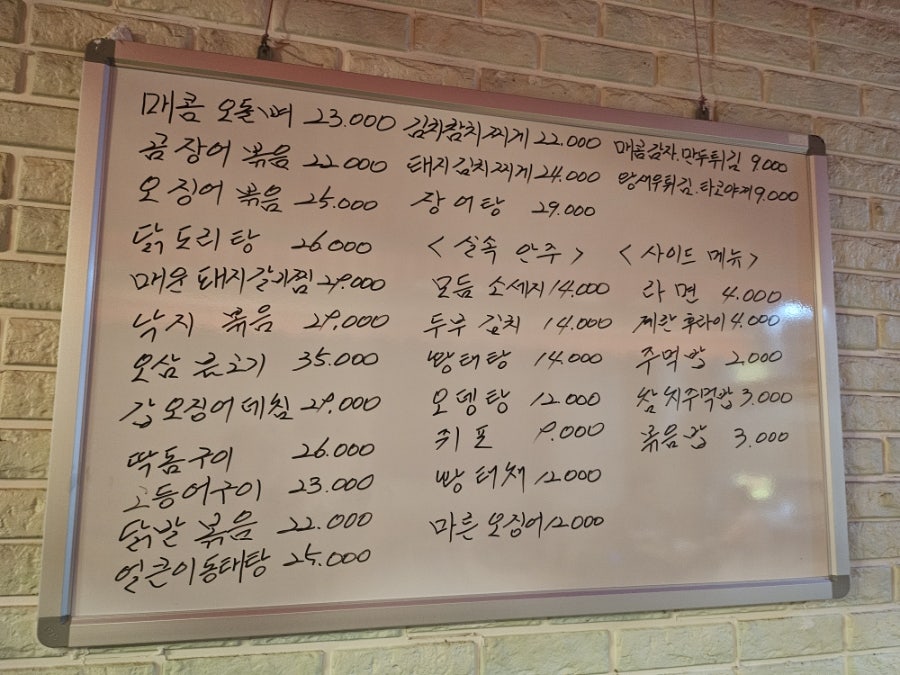 매콤 오돌뼈 23.000
곰장어 볶음 22.000
오징어 볶음 25.000
닭도리탕 26.000
매운돼지갈비찜 29.000
낙지 볶음 29.000
오삼불고기 35.000
갑오징어데침 29.000
딱돔구이 26.000
고등어구이 23.000
닭발 볶음 22.000
얼큰이동태탕 25.000
김치참치찌게 22.000
돼지김치찌게 24.000
장어탕 29.000
<실속 안주>
모듬 소세지 14.000
두부 김치 14.000
황태탕 14.000
오뎅탕 12.000
쥐포 9.000
황태채 12000
마른오징어 12000
매콤감자.만두튀김 9.000
왕새우튀김.타코야끼 9.000
<사이드 메뉴>
라면 4.000
계란후라이 4.000
주먹밥 2.000
참치주먹밥 3.000
볶음밥 3.000